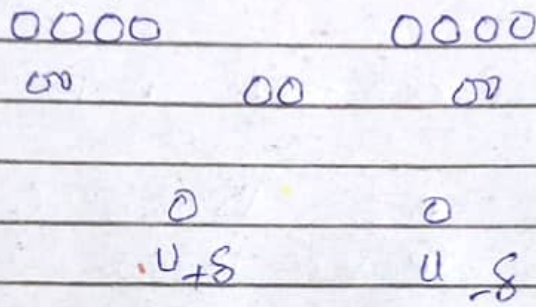 0000 0000
00 00 00
0 0
U+S U-S